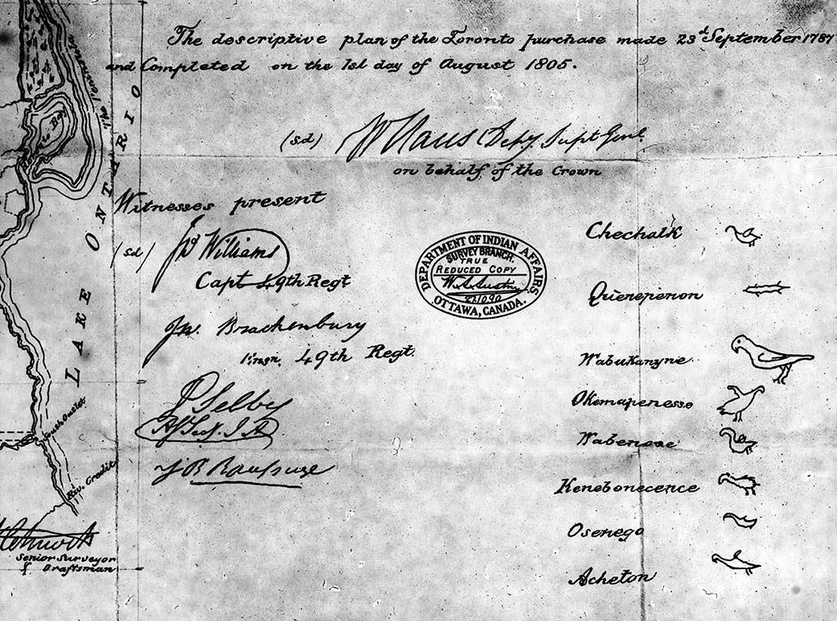 The descriptive plan of the Toronto purchase made 23d September 1787
and Completed on the 1st day of August 1805.
(sd) W Claus Depy Supt Genl
on behalf of the Crown
Witnesses present
(sd) Williams
Capt 49th Regt
Jno. Brackenbury
Ensn. 49th Regt.
P Selby
J B Rousseau
DEPARTMENT OF INDIAN AFFAIRS
SURVEY BRANCH.
TRUE
REDUCED COPY
OTTAWA, CANADA.
Chechalk
Queneperion
Wabukanyne
Okemapenesse
Wabenose
Kenebonecence
Osenego
Acheton
The Peninsula
LAKE ONTARIO
South Outlet
Riv. Credit
Senior Surveyor
& Draftsman